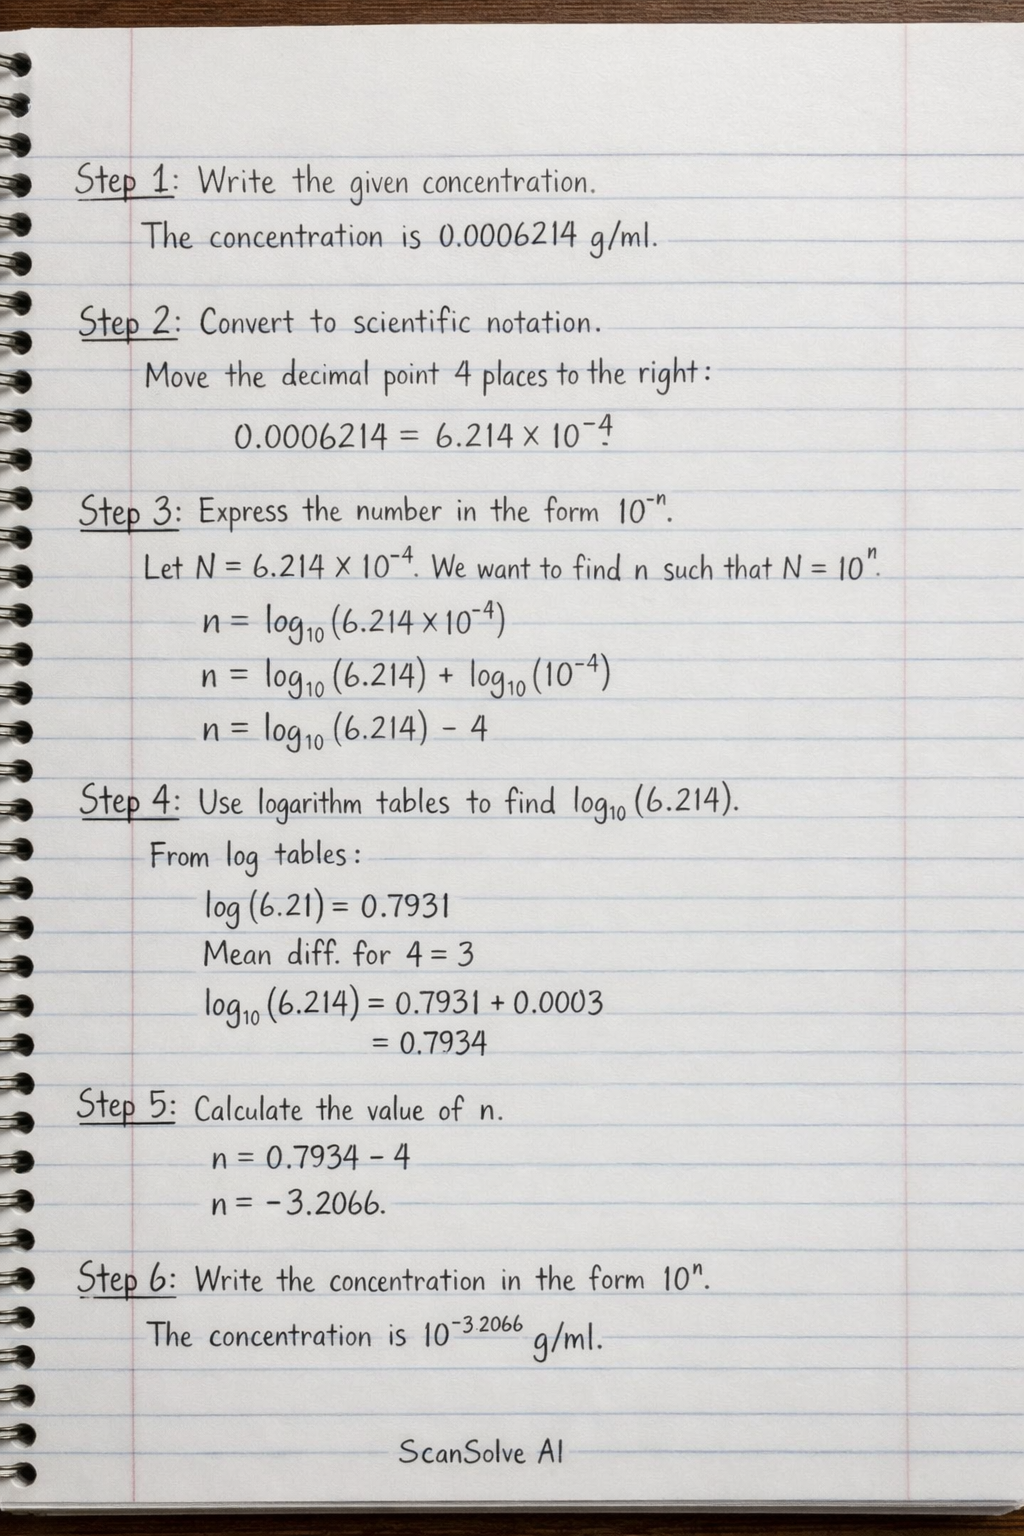 Step 1: Write the given concentration.
The concentration is 0.0006214 g/ml.
Step 2: Convert to scientific notation.
Move the decimal point 4 places to the right:
0.0006214 = 6.214 × 10⁻⁴.
Step 3: Express the number in the form 10⁻ⁿ.
Let N = 6.214 × 10⁻⁴. We want to find n such that N = 10ⁿ.
n = log₁₀ (6.214 × 10⁻⁴)
n = log₁₀ (6.214) + log₁₀ (10⁻⁴)
n = log₁₀ (6.214) − 4
Step 4: Use logarithm tables to find log₁₀ (6.214).
From log tables:
log (6.21) = 0.7931
Mean diff. for 4 = 3
log₁₀ (6.214) = 0.7931 + 0.0003
= 0.7934
Step 5: Calculate the value of n.
n = 0.7934 − 4
n = −3.2066.
Step 6: Write the concentration in the form 10ⁿ.
The concentration is 10⁻³·²⁰⁶⁶ g/ml.
ScanSolve AI